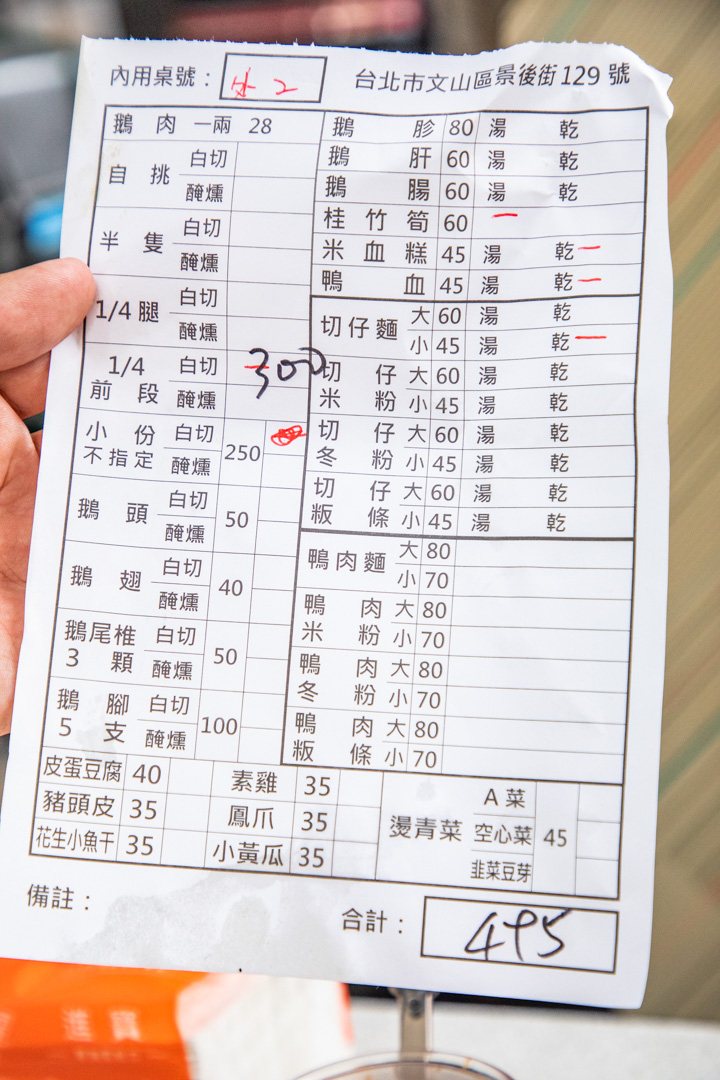 內用桌號： 外 2 台北市文山區景後街129號
鵝肉一兩 28
自挑 白切
醃燻
半隻 白切
醃燻
1/4腿 白切
醃燻
1/4前段 白切 300
醃燻
小份不指定 白切 250
醃燻
鵝頭 白切 50
醃燻
鵝翅 白切 40
醃燻
鵝尾椎3顆 白切 50
醃燻
鵝腳5支 白切 100
醃燻
鵝胗 80 湯 乾
鵝肝 60 湯 乾
鵝腸 60 湯 乾
桂竹筍 60 一
米血糕 45 湯 乾 一
鴨血 45 湯 乾 一
切仔麵 大 60 湯 乾
小 45 湯 乾 一
切仔米粉 大 60 湯 乾
小 45 湯 乾
切仔冬粉 大 60 湯 乾
小 45 湯 乾
切仔粄條 大 60 湯 乾
小 45 湯 乾
鴨肉麵 大 80
小 70
鴨肉米粉 大 80
小 70
鴨肉冬粉 大 80
小 70
鴨肉粄條 大 80
小 70
皮蛋豆腐 40 素雞 35
豬頭皮 35 鳳爪 35
花生小魚干 35 小黃瓜 35
燙青菜 A菜 45
空心菜
韭菜豆芽
備註：
合計： 495
進寶